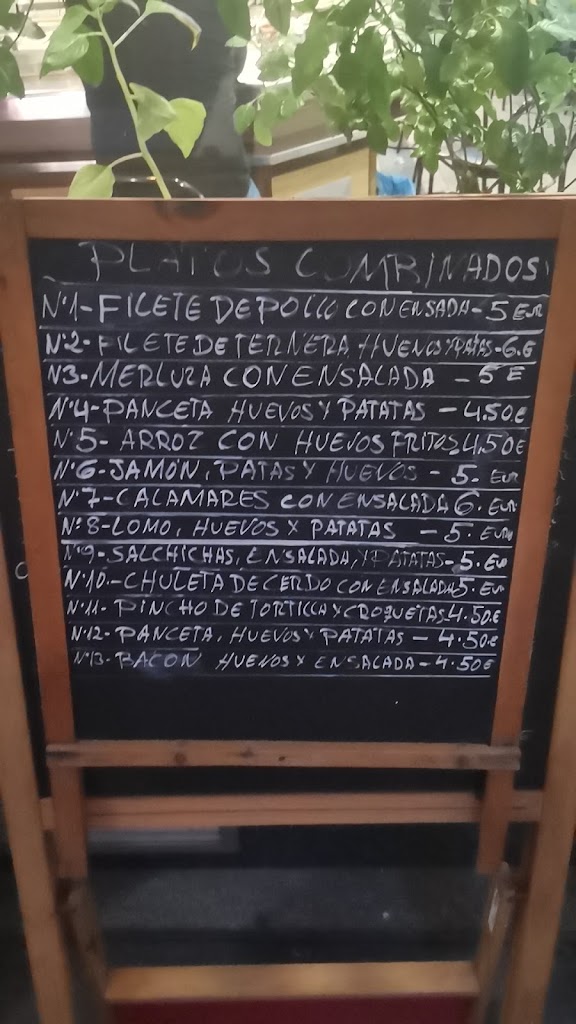 PLATOS COMBINADOS
Nº1-FILETE DE POLLO CON ENSADA-5 EUR
Nº2-FILETE DE TERNERA HUEVOS Y PATAS-6.E
N3-MERLUZA CON ENSALADA -5 E
Nº4-PANCETA HUEVOS Y PATATAS -4.50€
Nº5-ARROZ CON HUEVOS FRITOS 4.50€
Nº6-JAMÓN, PATAS Y HUEVOS -5. EUR
Nº7-CALAMARES CON ENSALADA 6. EUR
Nº8-LOMO, HUEVOS Y PATATAS -5. EURO
Nº9-SALCHICHAS, ENSALADA, Y PATATAS-5. EU
Nº10.-CHULETA DE CERDO CON ENSALADA 5. EU
Nº11-PINCHO DE TORTILLA Y CROQUETAS 4.50.€
Nº12-PANCETA, HUEVOS Y PATATAS -4.50€
Nº13-BACON HUEVOS Y ENSALADA-4.50€